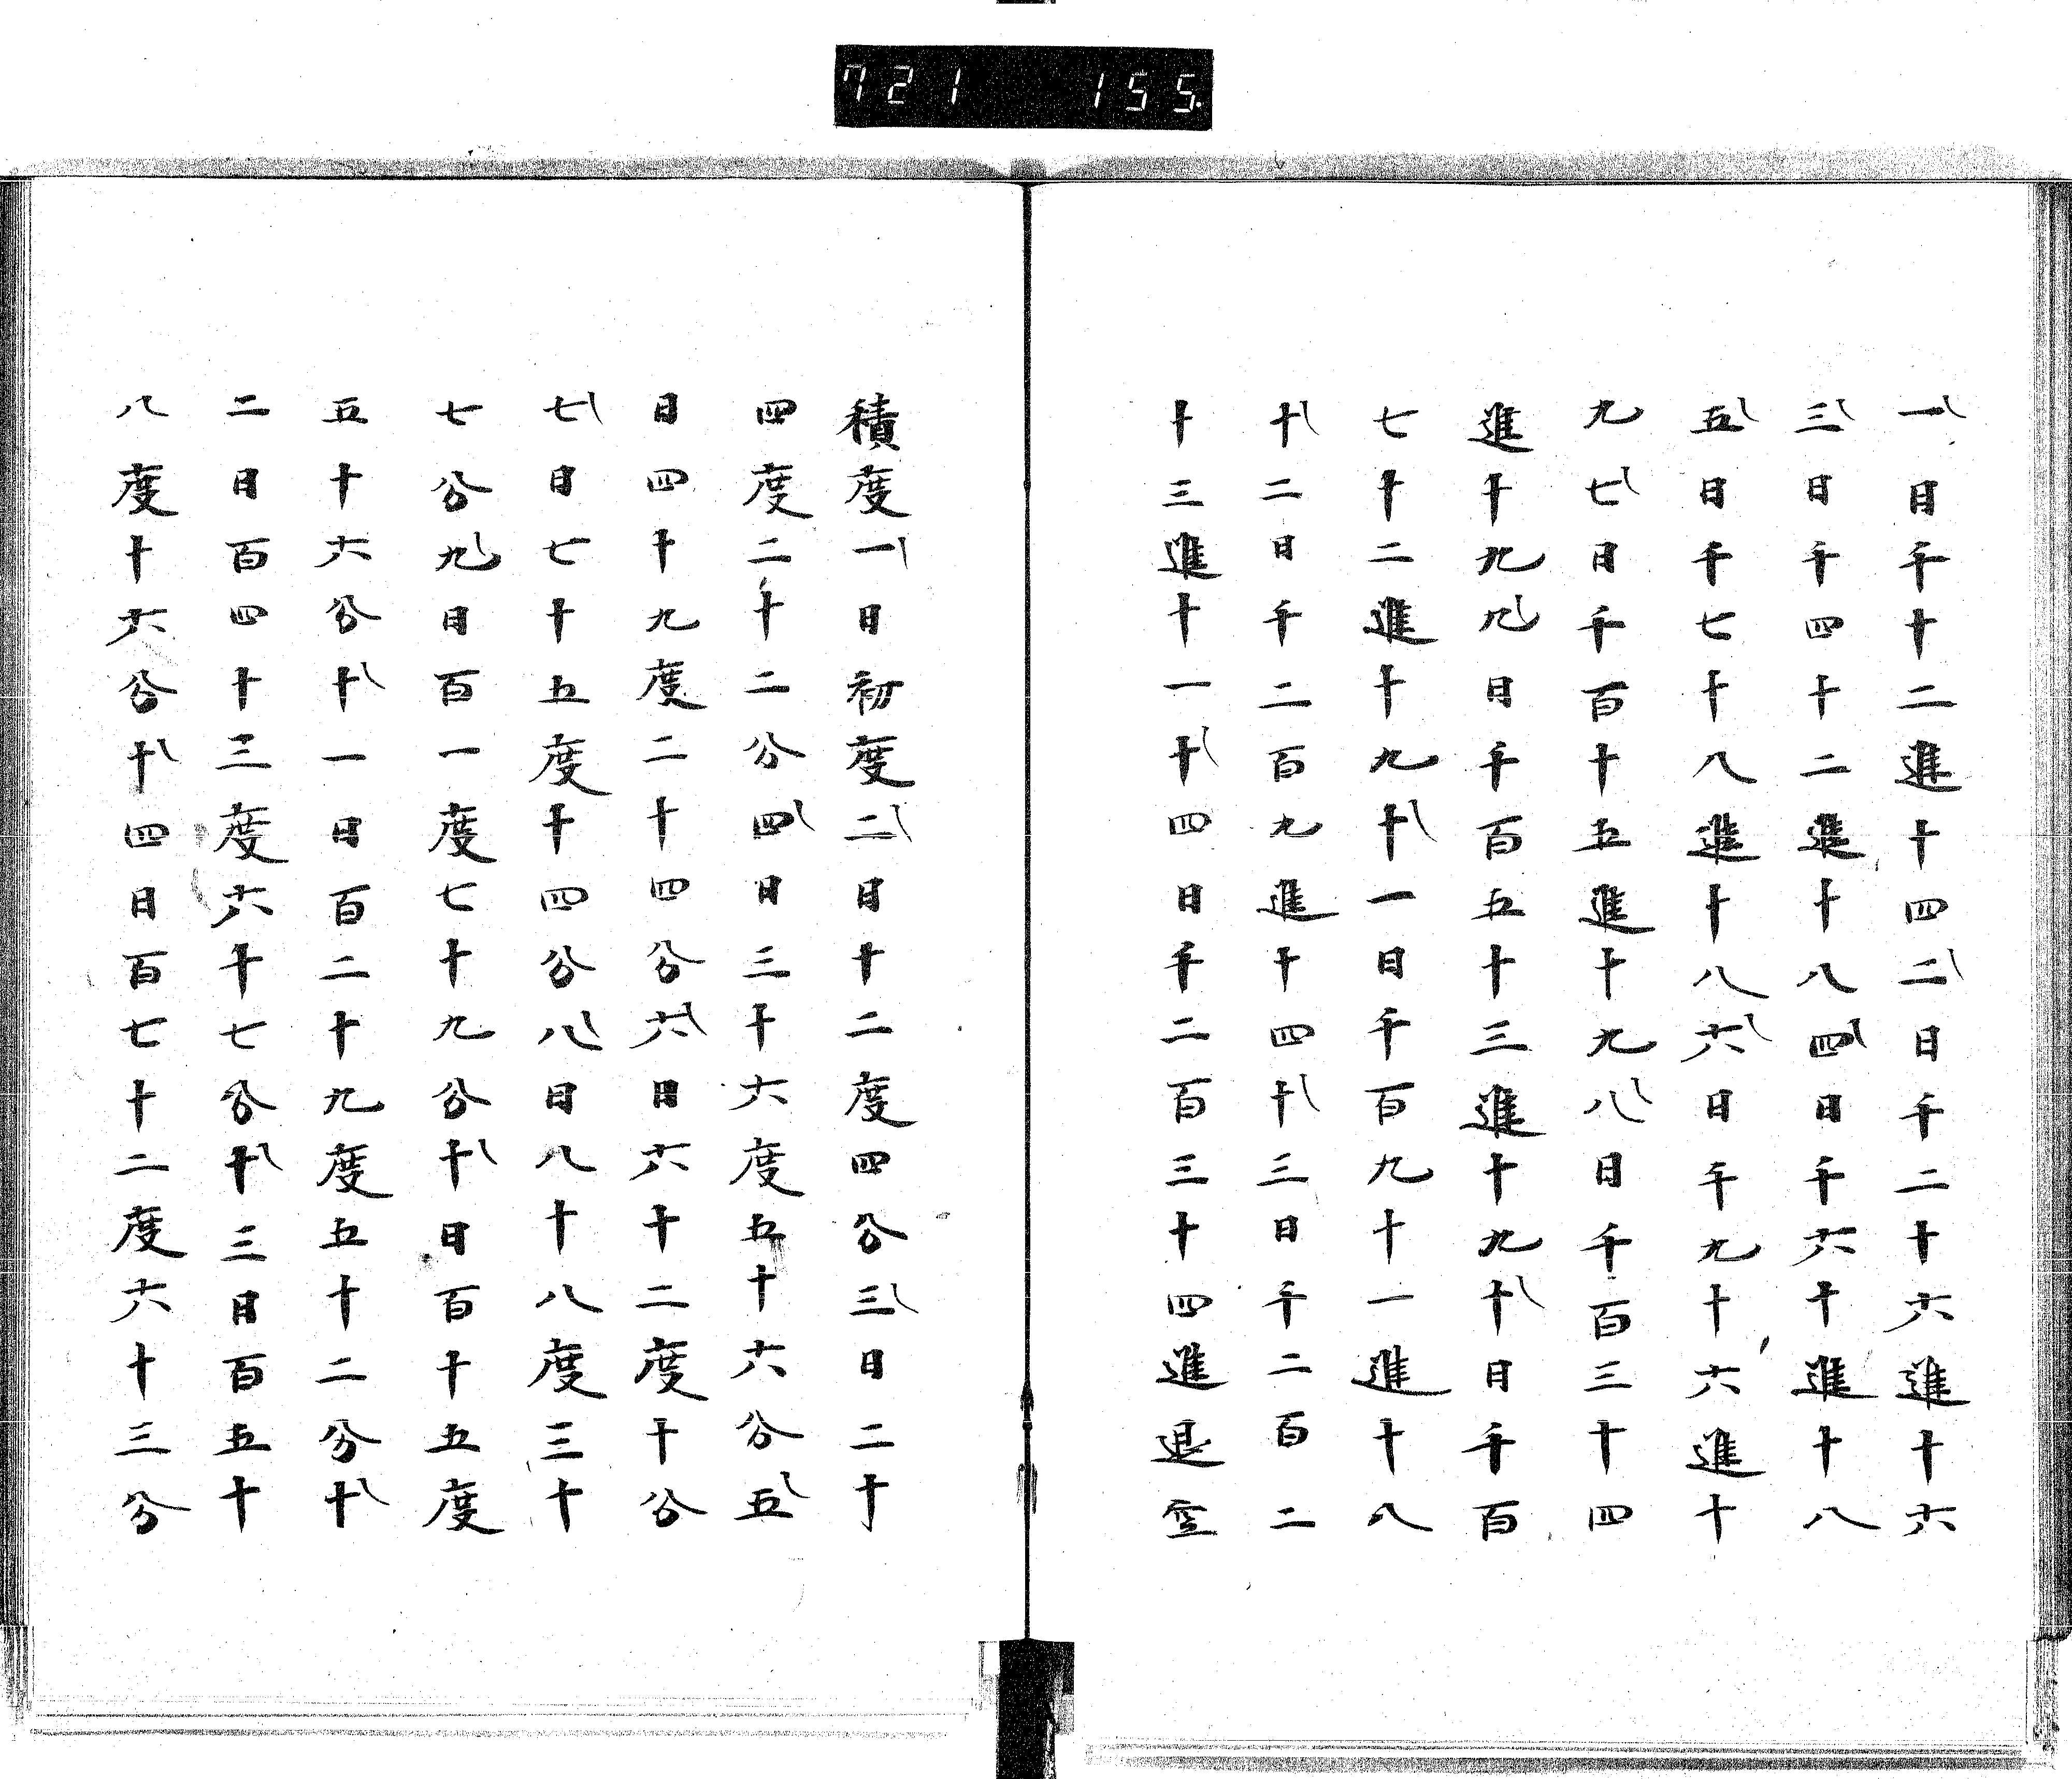 721 155.
一日千十二進十四二日千二十六進十六
三日千四十二進十八四日千六十進十八
五日千七十八進十八六日千九十六進十
九七日千百十五進十九八日千百三十四
進十九九日千百五十三進十九十日千百
七十二進十九十一日千百九十一進十八
十二日千二百九進十四十三日千二百二
十三進十一十四日千二百三十四進退空
積度一日初度二日十二度四分三日二十
四度二十二分四日三十六度五十六分五
日四十九度二十四分六日六十二度十分
七日七十五度十四分八日八十八度三十
七分九日百一度七十九分十日百十五度
五十六分十一日百二十九度五十二分十
二日百四十三度六十七分十三日百五十
八度十六分十四日百七十二度六十三分